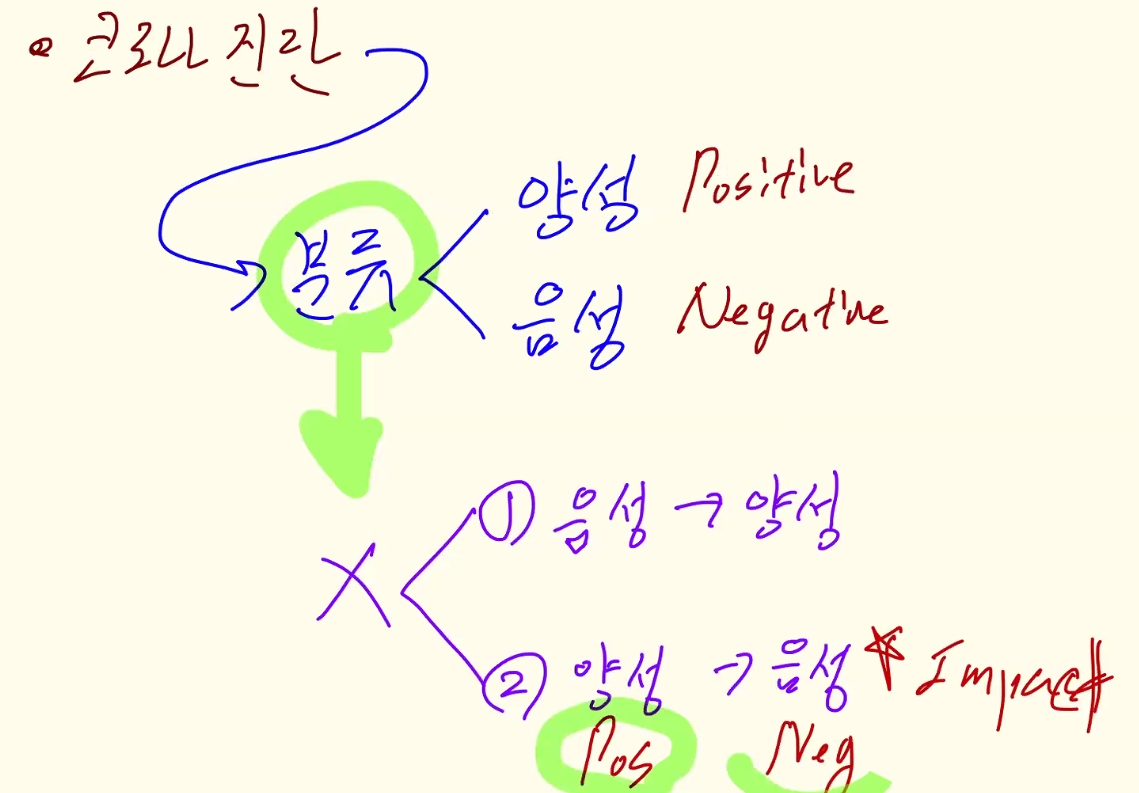 • 코로나 진단
분류
양성 Positive
음성 Negative
X
① 음성 → 양성
② 양성 → 음성 ☆ Impact
Pos Neg